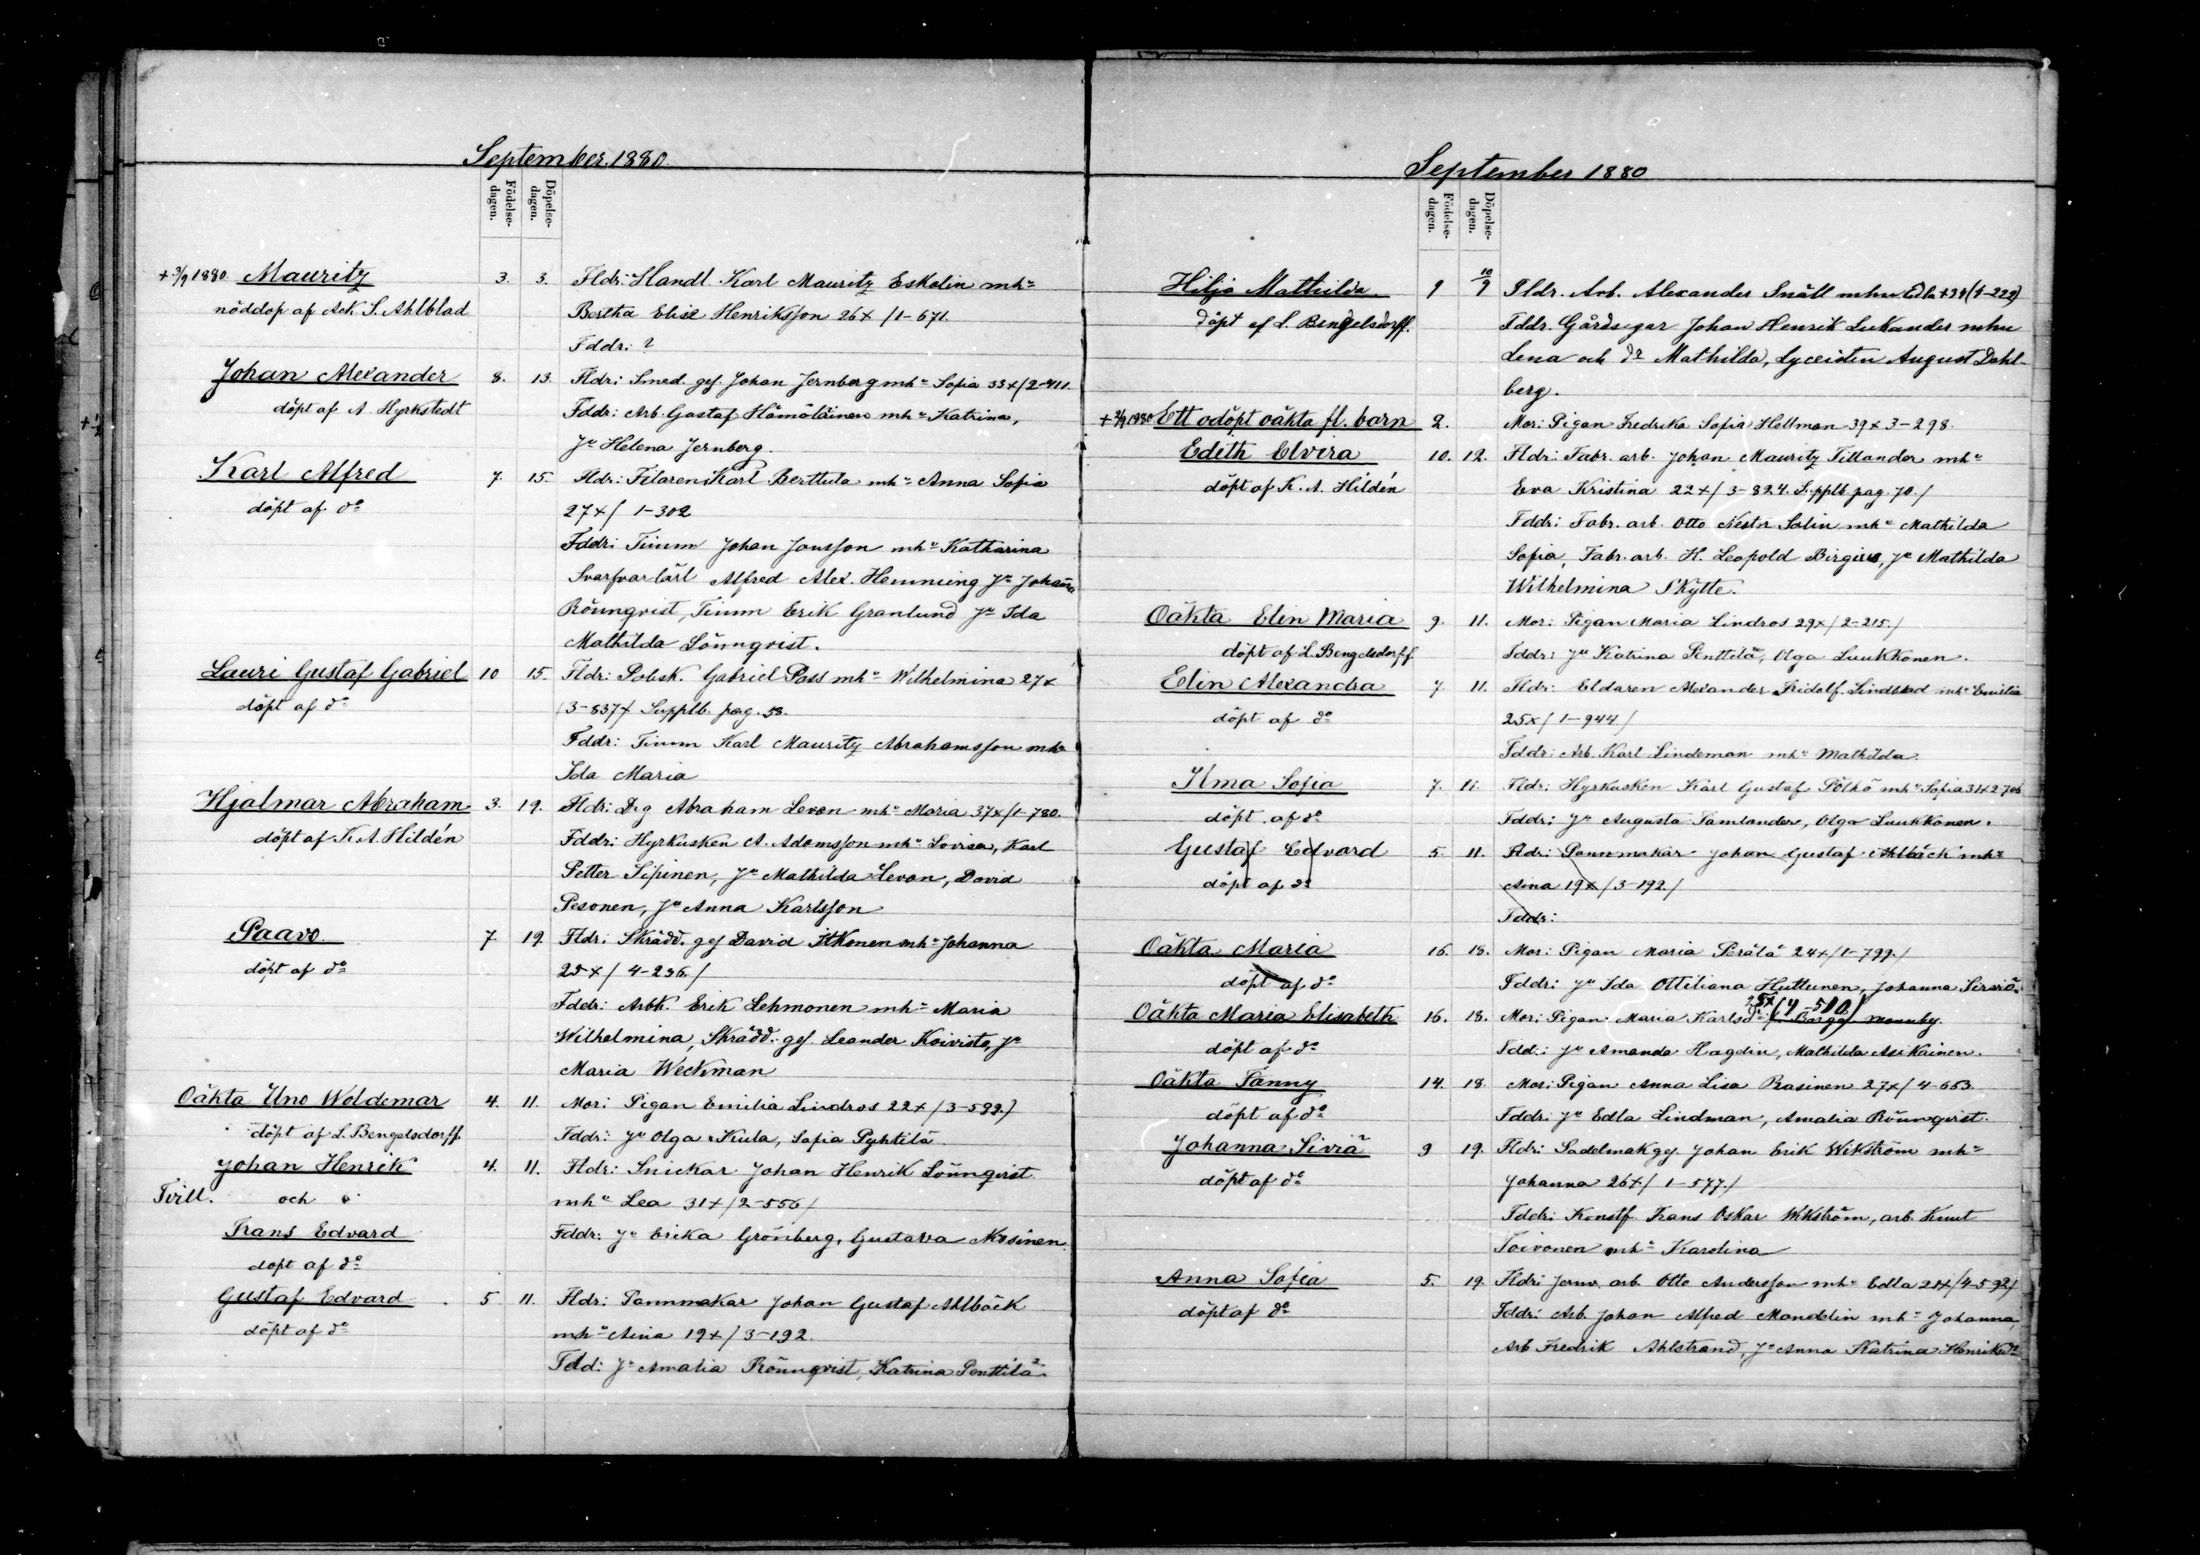 September. 1880.
Födelse-
dagen.
Döpelse-
dagen.
+ 3/9 1880. Mauritz 3. 3. Fldr: Handl. Karl Mauritz Eskolin mhu
nöddop af Ack. S. Ahlblad Bertha Elise Henriksson 26+ /1-671.
Fddr: ?
Johan Alexander 8. 13. Fldr: Smed. ges. Johan Jernberg mhu Sofia 33+/2-411.
döpt af A Hyrkstedt Fddr: Arb. Gustaf Hämäläinen mhu Katrina,
Ju Helena Jernberg.
Karl Alfred 7. 15. Fldr: Filaren Karl Berttula mhu Anna Sofia
döpt af do 27+/ 1-302
Fddr: Timm Johan Jansson mhu Katharina
Svarfvarlärl Alfred Alex. Hemming Ju Johanna
Rönnqvist, Timm Erik Granlund Ju Ida
Mathilda Lönnqvist.
Lauri Gustaf Gabriel 10 15. Fldr: Polisk. Gabriel Pass mhu Wilhelmina 27+
döpt af do /3-837+ Supplb. pag. 58.
Fddr: Timm Karl Mauritz Abrahamsson mhu
Ida Maria
Hjalmar Abraham. 3. 19. Fldr: Drg Abraham Levon mhu Maria 37+/1-780.
döpt af K. A. Hildén Fddr: Hyrkusken A. Adamsson mhu Lovisa, Karl
Petter Sipinen, Ju Mathilda Levon, David
Pesonen, Ju Anna Karlsson
Paavo 7. 19. Fldr: Skrädd. ges David Itkonen mhu Johanna
döpt af do 25+/ 4-236./
Fddr: Arbk. Erik Lehmonen mhu Maria
Wilhelmina, Skrädd. ges. Leander Koivisto, Ju
Maria Weckman
Oäkta Uno Woldemar 4. 11. Mor: Pigan Emilia Lindros 22+/3-599./
döpt af L. Bengelsdorff. Fddr: Ju Olga Kula, Sofia Pyhtilä.
Johan Henrik 4. 11. Fldr: Snickar Johan Henrik Lönnqvist
Tvill. och mhu Lea 31+/2-556/
Frans Edvard Fddr: Ju Erika Grönberg, Gustava Mosinen.
döpt af do
Gustaf Edvard. 5 11. Fldr: Pannmakar Johan Gustaf Ahlbäck
döpt af do mhu Aina 19+/3-192.
Fdd: Ju Amalia Rönnqvist, Katrina Penttilä.
September 1880
Födelse-
dagen.
Döpelse-
dagen.
Hilja Mathilda 9 10/9 Fldr. Arb. Alexander Snäll mhu Edla +34 (4-222)
döpt af L. Bengelsdorff. Fddr. Gårdsegar Johan Henrik Lukander mhu
Lena och dr Mathilda, Lyceisten August Dahl-
berg.
+ 2/9 1880 Ett odöpt oäkta fl. barn 2. Mor: Pigan Fredrika Sofia Hellman 39+ 3-298.
Edith Elvira 10. 12. Fldr: Fabr. arb. Johan Mauritz Tillander mhu
döpt af K. A. Hildén Eva Kristina 22+/3-824. Supplb pag. 70./
Fddr: Fabr. arb. Otto Nestor Salin mhu Mathilda
Sofia, Fabr. arb. H. Leopold Birgius, Ju Mathilda
Wilhelmina Skytte.
Oäkta Elin Maria 9. 11. Mor: Pigan Maria Lindros 29+/2-215./
döpt af L. Bengelsdorff. Fddr: Ju Katrina Penttilä, Olga Luukkonen.
Elin Alexandra 7 11. Fldr: Eldaren Alexander Fridolf Lindblad mhu Emilia
döpt af do 25+/1-944/
Fddr: Arb. Karl Lindeman mhu Mathilda.
Ilma Sofia 7. 11. Fldr: Hyrkusken Karl Gustaf Pölkö mhu Sofia 31+2-706
döpt af do Fddr: Ju Augusta Samlander, Olga Luukkonen.
Gustaf Edvard 5. 11. Fldr: Pannmakar Johan Gustaf Ahlbäck mhu
döpt af do Aina 19+/3-192/
Fddr:
Oäkta Maria 16. 18. Mor: Pigan Maria Perälä 24+/1-799./
döpt af do Fddr: Ju Ida Ottiliana Huttunen, Johanna
Oäkta Maria Elisabeth 16. 18. Mor: Pigan Maria Karlsdr (4-510) Borgå
döpt af do Fddr: Ju Amanda Hagdin, Mathilda Asikainen.
Oäkta Fanny 14. 18. Mor: Pigan Anna Lisa Rasinen 27+/4-653.
döpt af do Fddr: Ju Edla Lindman, Amalia Rönnqvist.
Johanna Siviä 9 19. Fldr: Sadelmakges. Johan Erik Wikström mhu
döpt af do Johanna 26+/1-577./
Fddr: Konstf. Frans Oskar Wikström, arb. Knut
Toivonen mhu Karolina
Anna Sofia 5. 19. Fldr: Jernv. arb. Otto Andersson mhu Edla 21+/4-592/
döpt af do Fddr: Arb. Johan Alfred Mandelin mhu Johanna,
Arb Fredrik Ahlstrand, Ju Anna Katrina Henriksdr